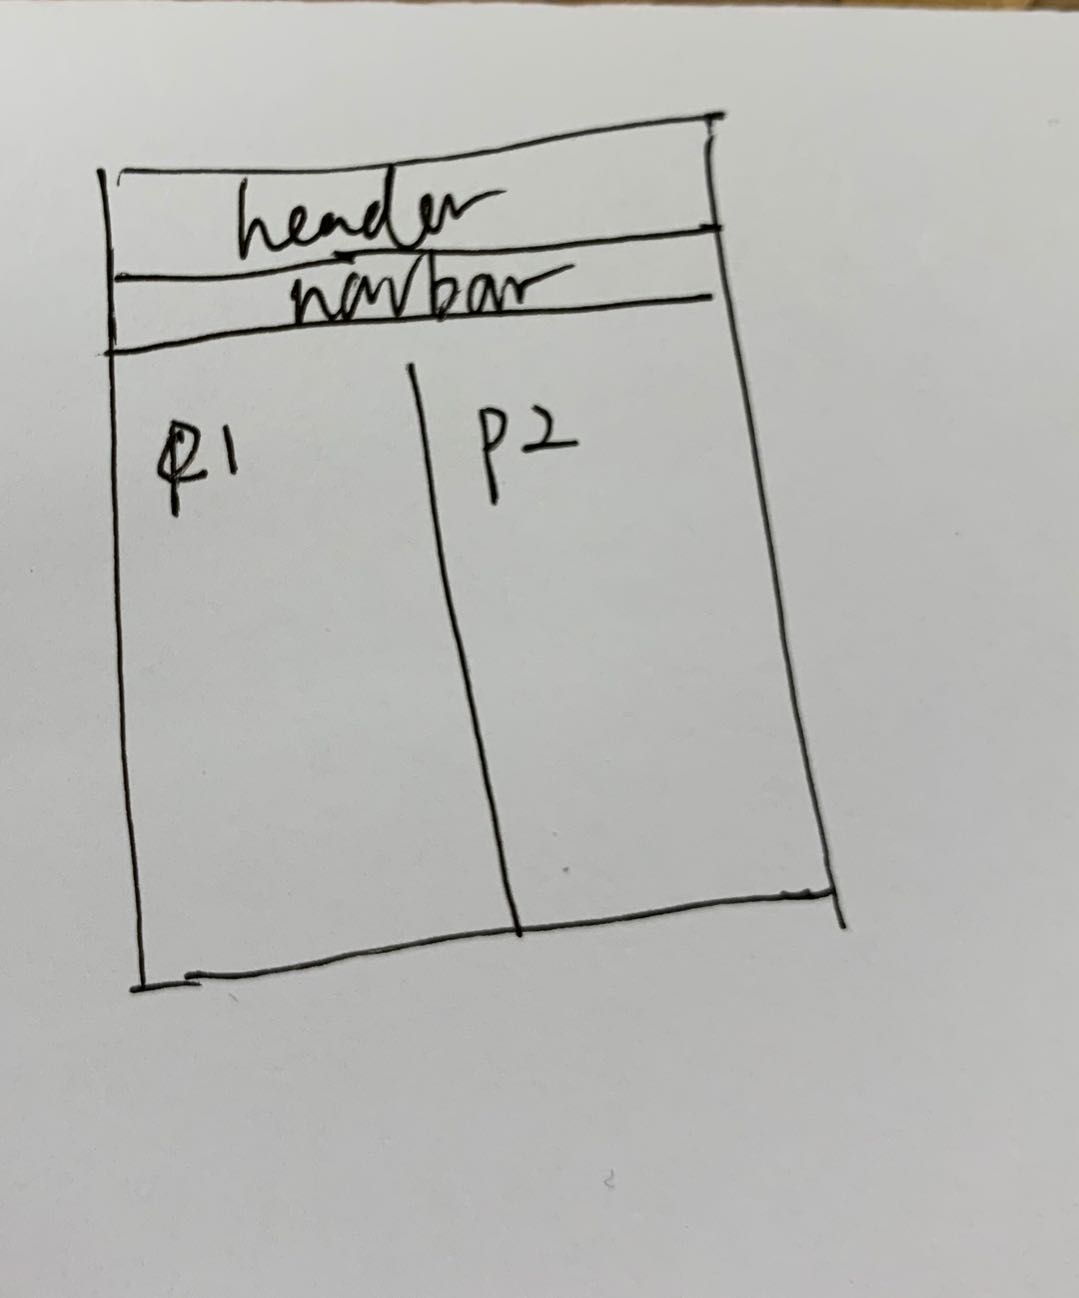 header
navbar
P1
P2